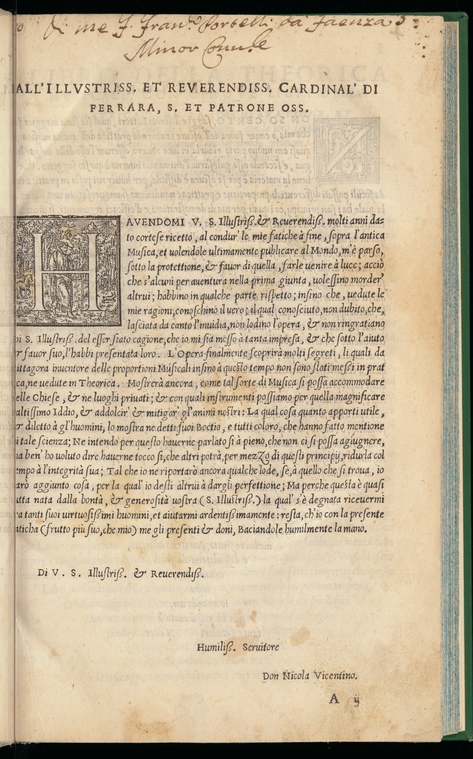 di me f. Fran.co Portelli da faenza
Minor Conu.le
ALL'ILLVSTRISS. ET REVERENDISS. CARDINAL' DI
FERRARA, S. ET PATRONE OSS.
HAVENDOMI V. S. Illustriss. & Reverendiss. molti anni da-
to cortese ricetto, al condur' le mie fatiche à fine, sopra l'antica
Musica, et volendole ultimamente publicare al Mondo, m'è parso,
sotto la protettione, & favor di quella, farle venire à luce; acciò
che s'alcuni per aventura nella prima giunta, volessino morder'
altrui; habbino in qualche parte rispetto; insino che, vedute le
mie ragioni, conoschino il vero: il qual conosciuto, non dubito, che,
lasciata da canto l'invidia, non lodino l'opera, & non ringratiano
S. Illustriss. del esser stato cagione, che io mi sia messo à tanta impresa, & che sotto l'aiuto
favor suo, l'habbi presentata loro. L'Opera finalmente scoprirà molti segreti, li quali da
ittagora inventore delle proportioni Musicali insino à questo tempo non sono stati messi in prat
ca, ne vedute in Theorica. Mostrerà ancora, come tal sorte di Musica si possa accommodare
elle Chiese, & ne luoghi privati; & con quali instrumenti possiamo per quella magnificare
altissimo Iddio, & addolcir' & mitigar' gl'animi nostri: La qual cosa quanto apporti utile,
& diletto à gl'huomini, lo mostra ne detti suoi Boetio, e tutti coloro, che hanno fatto mentione
i tale scienza; Ne intendo per questo haverne parlato sì à pieno, che non ci si possa agiugnere,
a ben' ho voluto dire haverne tocco sì, che altri potrà, per mezzo di questi principij, ridurla col
mpo à l'integrità sua; Tal che io ne riportarò ancora qualche lode, se, à quello che si trova, io
arò aggiunto cosa, per la qual' io desti altrui à dargli perfettione; Ma perche questa è quasi
utta nata dalla bontà, & generosità vostra (S. Illustriss.) la qual' s'è degnata ricevermi
ra tanti suoi virtuosissimi huomini, et aiutarmi ardentissimamente: resta, ch'io con la presente
aticha (frutto più suo, che mio) me gli presenti & doni, Baciandole humilmente la mano.
Di V. S. Illustriss. & Reverendiss.
Humiliss. Servitore
Don Nicola Vicentino.
A ij